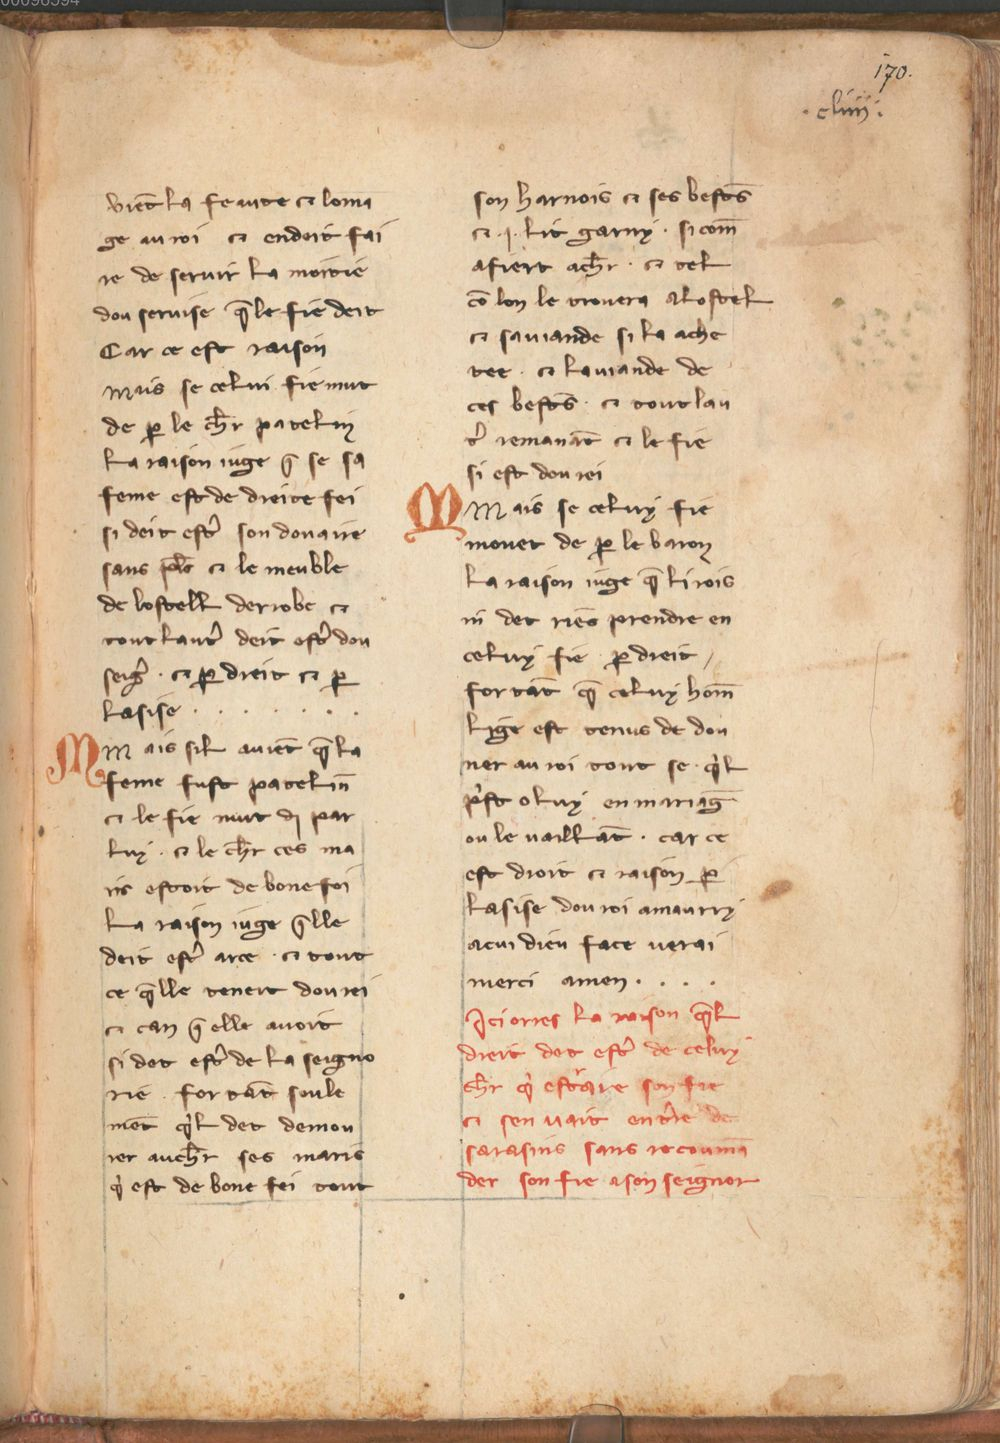 170.
.cliiii.
vient la feaute et loma
ge au roi et endeit fai
re de servir la moitie
dou servise q̄ le fie deit
Car ce est raison
Mais se celui fie mut
de p̱ le ch̅r patelin
la raison iuge q̄ se sa
feme est de dreite fei
si deit est̛ son douaire
sans et le meuble
de lostell derrobe et
tout laut̛ deit est̛ dou
seig̛ . et p̱ dreit et p̱
lasise . . . . . . .
Mais sil auiēt q̄ la
feme fust patelin̄
et le fie mut de par
luy . et le ch̅r ces ma
ris estoit de bone foi
la raison iuge q̄lle
deit est̛ arce . et tout
ce q̄lle teneit dou rei
et can q̄ elle auoit
si det est̛ de la seigno
rie . fortāt soule
mēt q̛l det demou
rer auch̅r ses maris
q̛ est de bone fei tout
son harnois et ses bestēs
et .j. lit garny . si com̄
afiert ach̅r . et tel
cō lon le trouera alostel
et sauiande si la ache
tee . et lauiande de
ces bestēs . et tout lau
t̛ remanāt et le fie
si est dou rei
Mais se celuy fie
mouet de p̱ le baron
la raison iuge q̄ li rois
ni det riēs prendre en
celuy fie p̱ dreit /
fortāt q̄ celuy hom̄
lige est tenus de don
ner au roi tout se q̛l
p̛st o luy en mariaḡ
ou le uaillāt . car ce
est droit et raison p̱
lasise dou roi amaurry
acui dieu face uerai
merci amen . . . .
Ici orres la raison q̄l
dreit det est̛ de celuy
ch̅r q̛ son fie
et sen uait en t̛re de
sarasins sans recouma
der son fie a son seignor